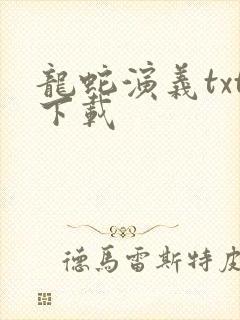 龍蛇演義txt
下載
德馬雷斯特皮